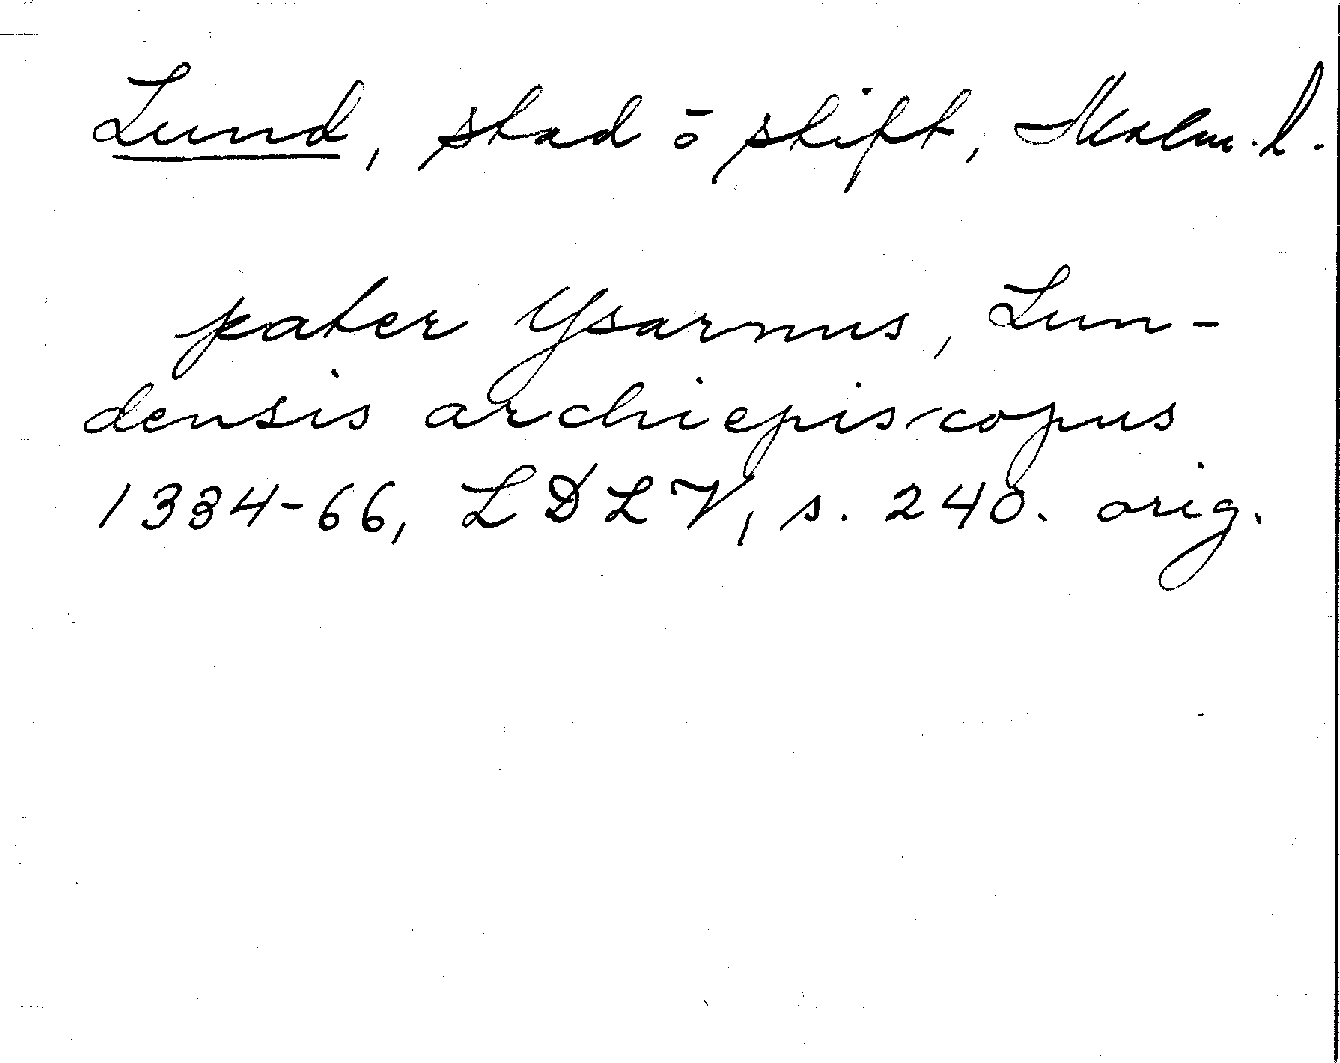 Lund, stad ō stift, Malm. l.
pater Ysarnus, Lun-
densis archiepiscopus
1334-66, LDLV, s. 240. orig.